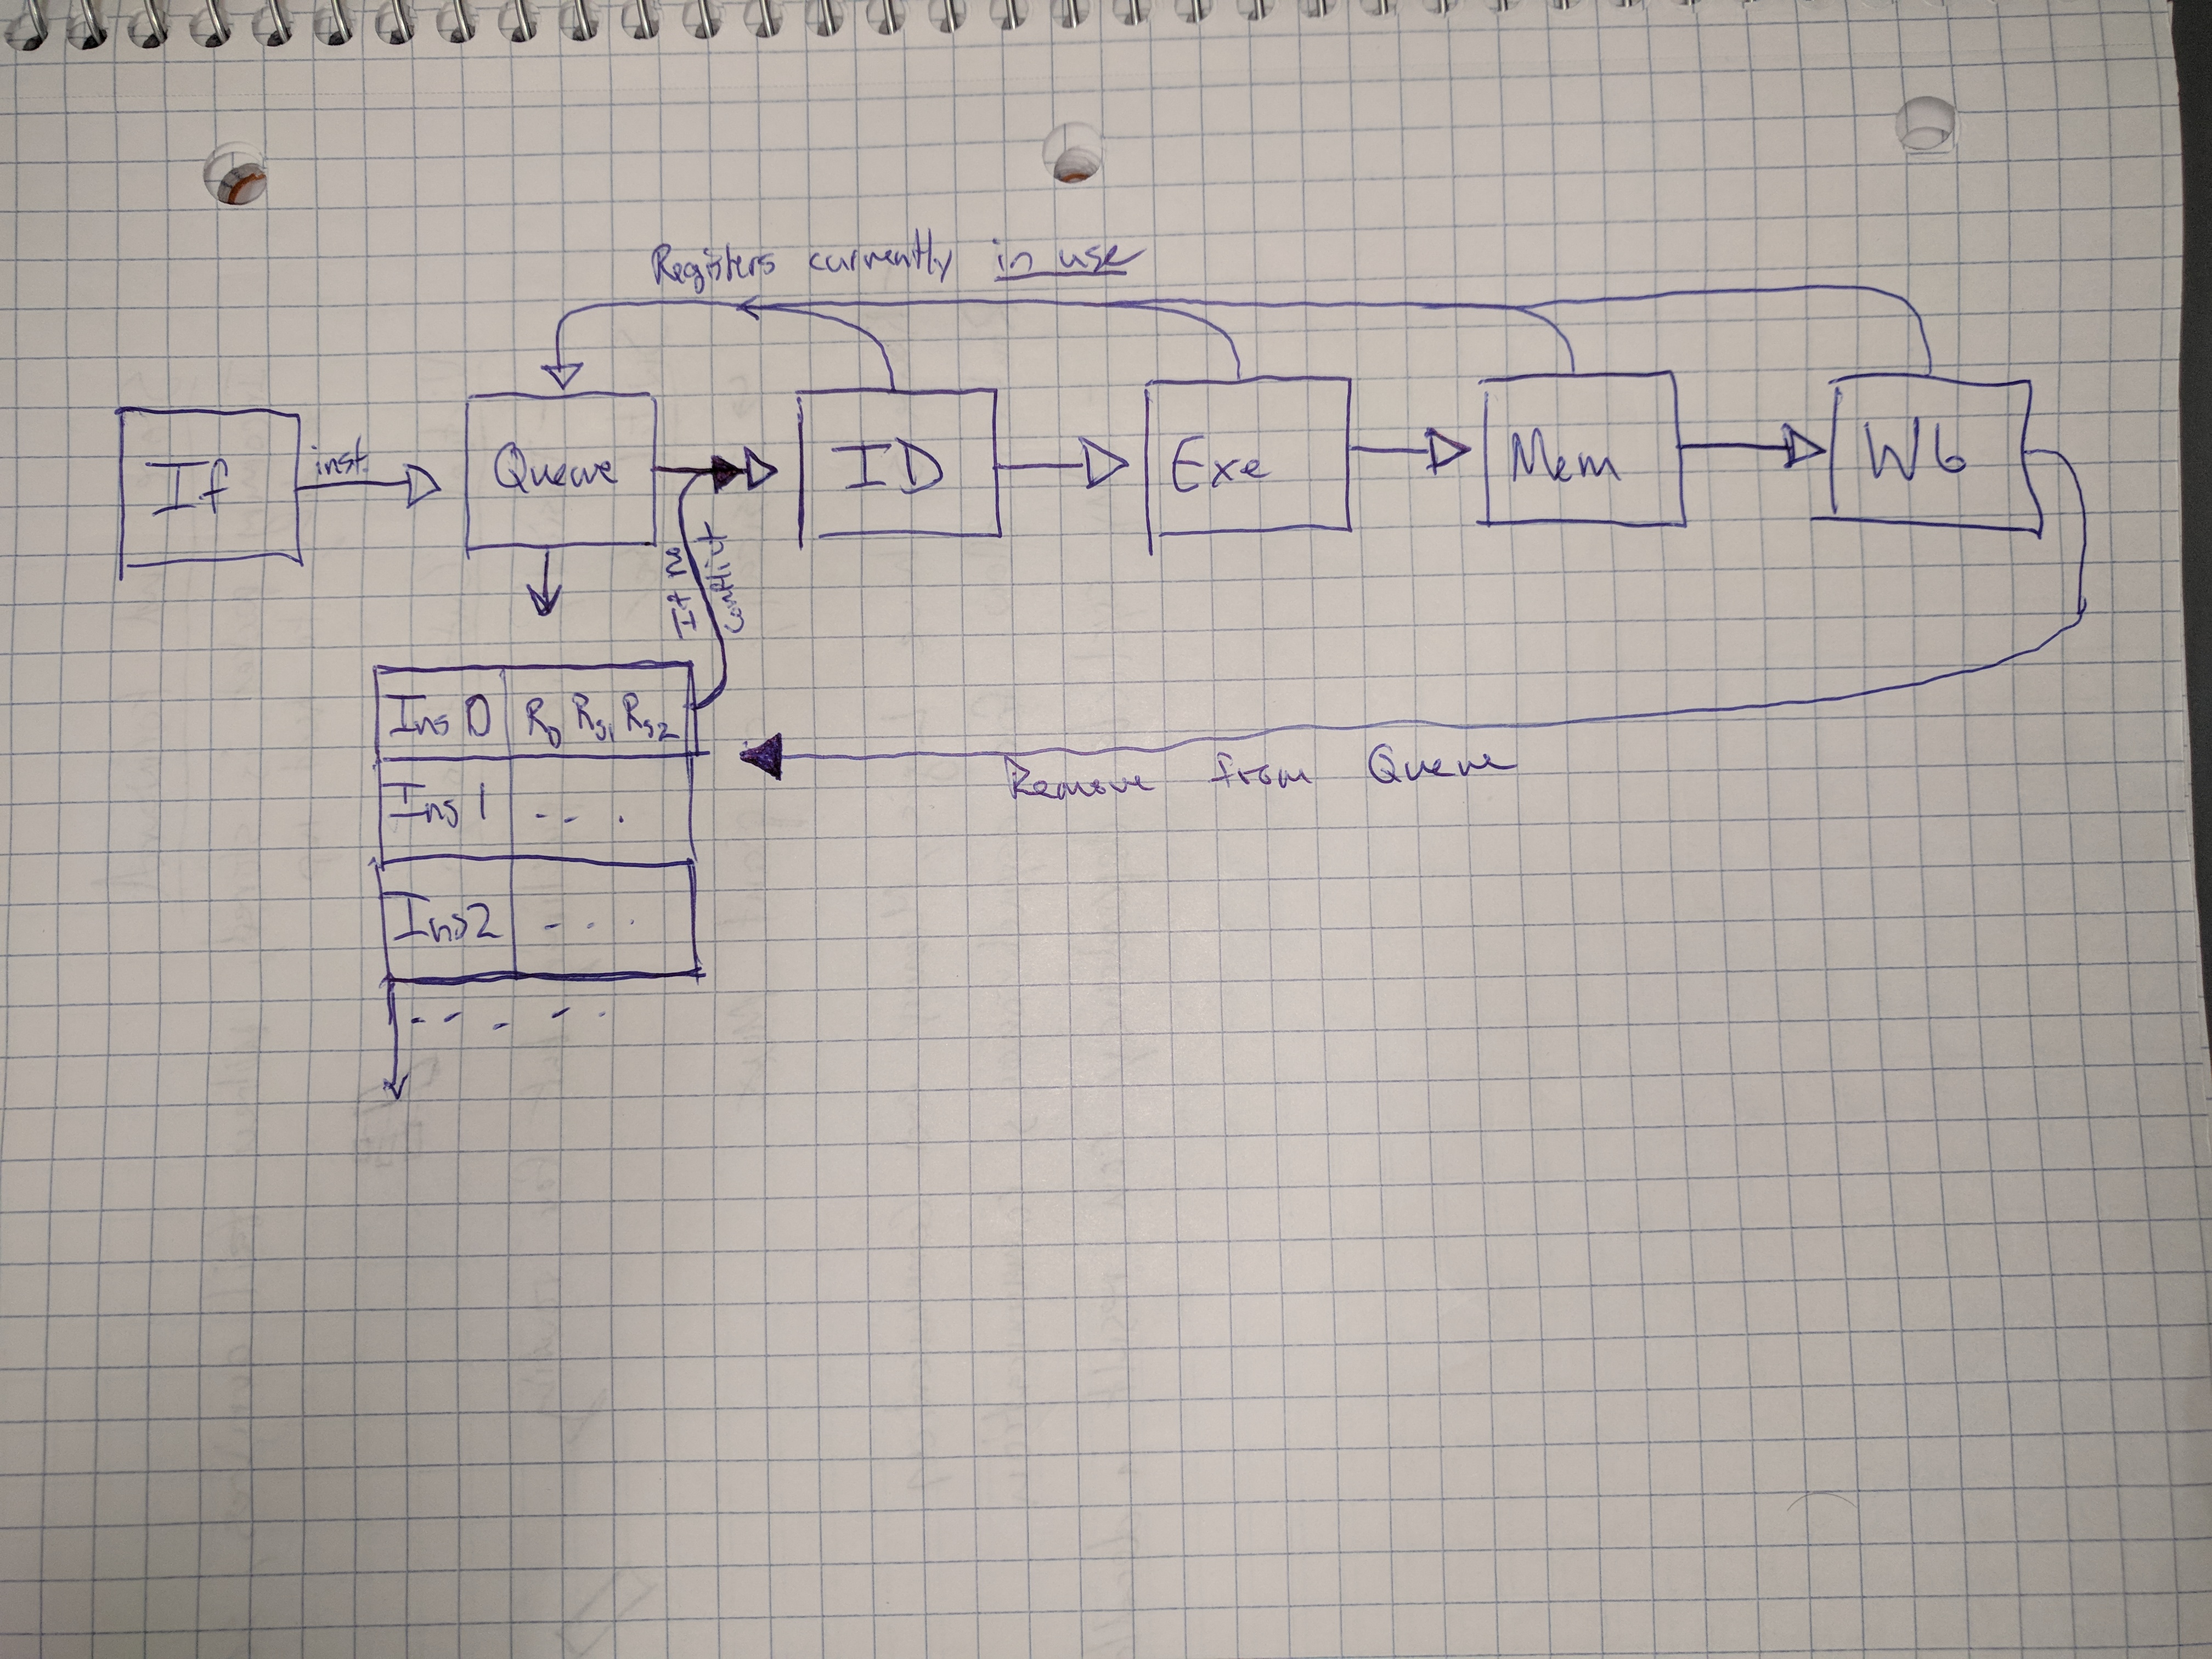 Registers currently in use
If
inst.
Queue
ID
Exe
Mem
Wb
If no
conflict
Ins 0 RD Rs1 Rs2
Ins 1 - - .
Ins2 - - .
- - - - .
Remove from Queue